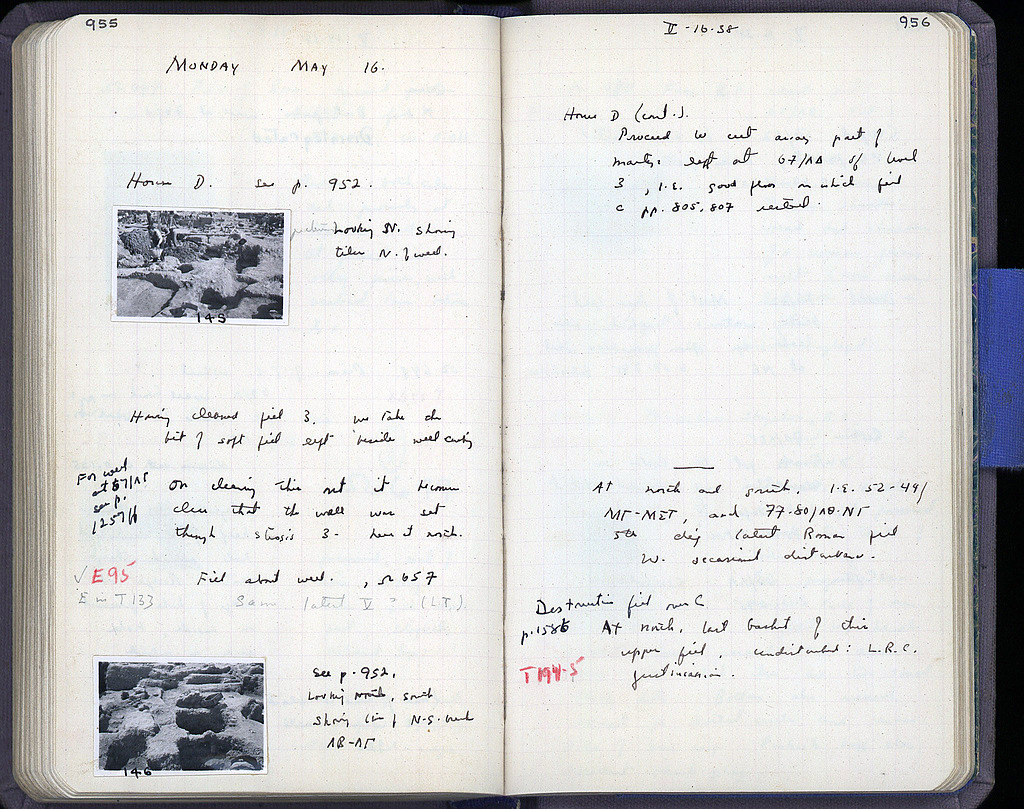 955
MONDAY MAY 16.
House D. see p. 952.
Looking N. showing
tiles N. of well.
145
Having cleaned fill 3. we take the
bit of soft fill left beside well curbing
For well
at 67/ΛΕ
see p.
1257 ff
On clearing this out it becomes
clear that the well was set
through stosis 3 - here at north.
√ E95
Fill about well. , Σλ 657
E in T 133 Same latest V ? (LT).
see p. 952.
Looking north, south
showing line of N-S. wall
ΛΒ-ΛΓ
146
956
V-16-38
House D (cont.).
Proceed to cut away part of
left at 67/ΛΔ of level
3, i.e. good floor on which fill
c pp. 805, 807 rested.
At north and south, i.e. 52-49/
ΜΓ-ΜΕΤ, and 77-80/ΛΘ-ΝΓ
5th dig latest Roman fill
w. occasional disturbance.
Destruction fill over C
p. 1585
At north, last basket of this
upper fill, undisturbed: L.R.C.
Justinian.
T194-5